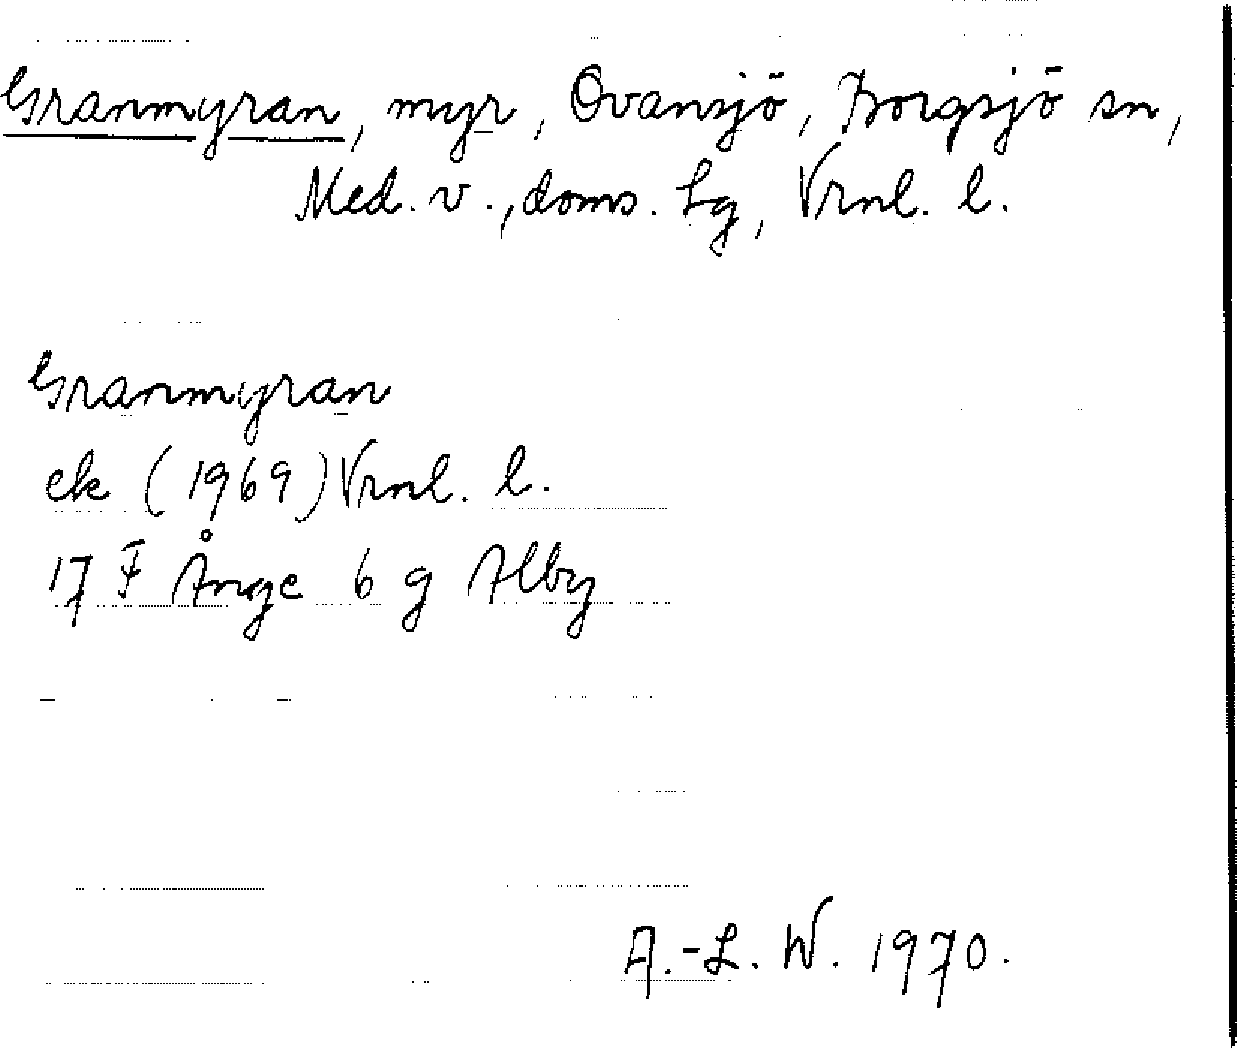 Granmyran, myr, Ovansjö, Borgsjö sn,
Med. v., doms. Lg, Vrnl. l.
Granmyran
ek (1969) Vrnl. l.
17 F Ånge 6 g Alby
A.-L. W. 1970.